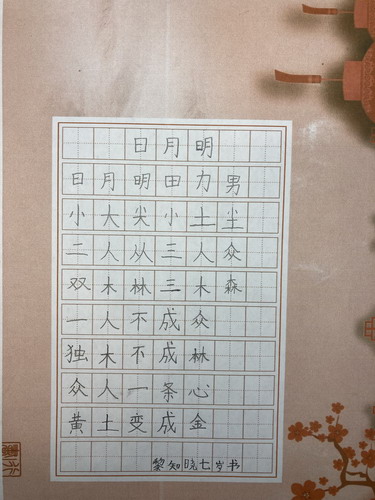 日月明
日月明田力男
小大尖小土尘
二人从三人众
双木林三木森
一人不成众
独木不成林
众人一条心
黄土变成金
黎知晓七岁书